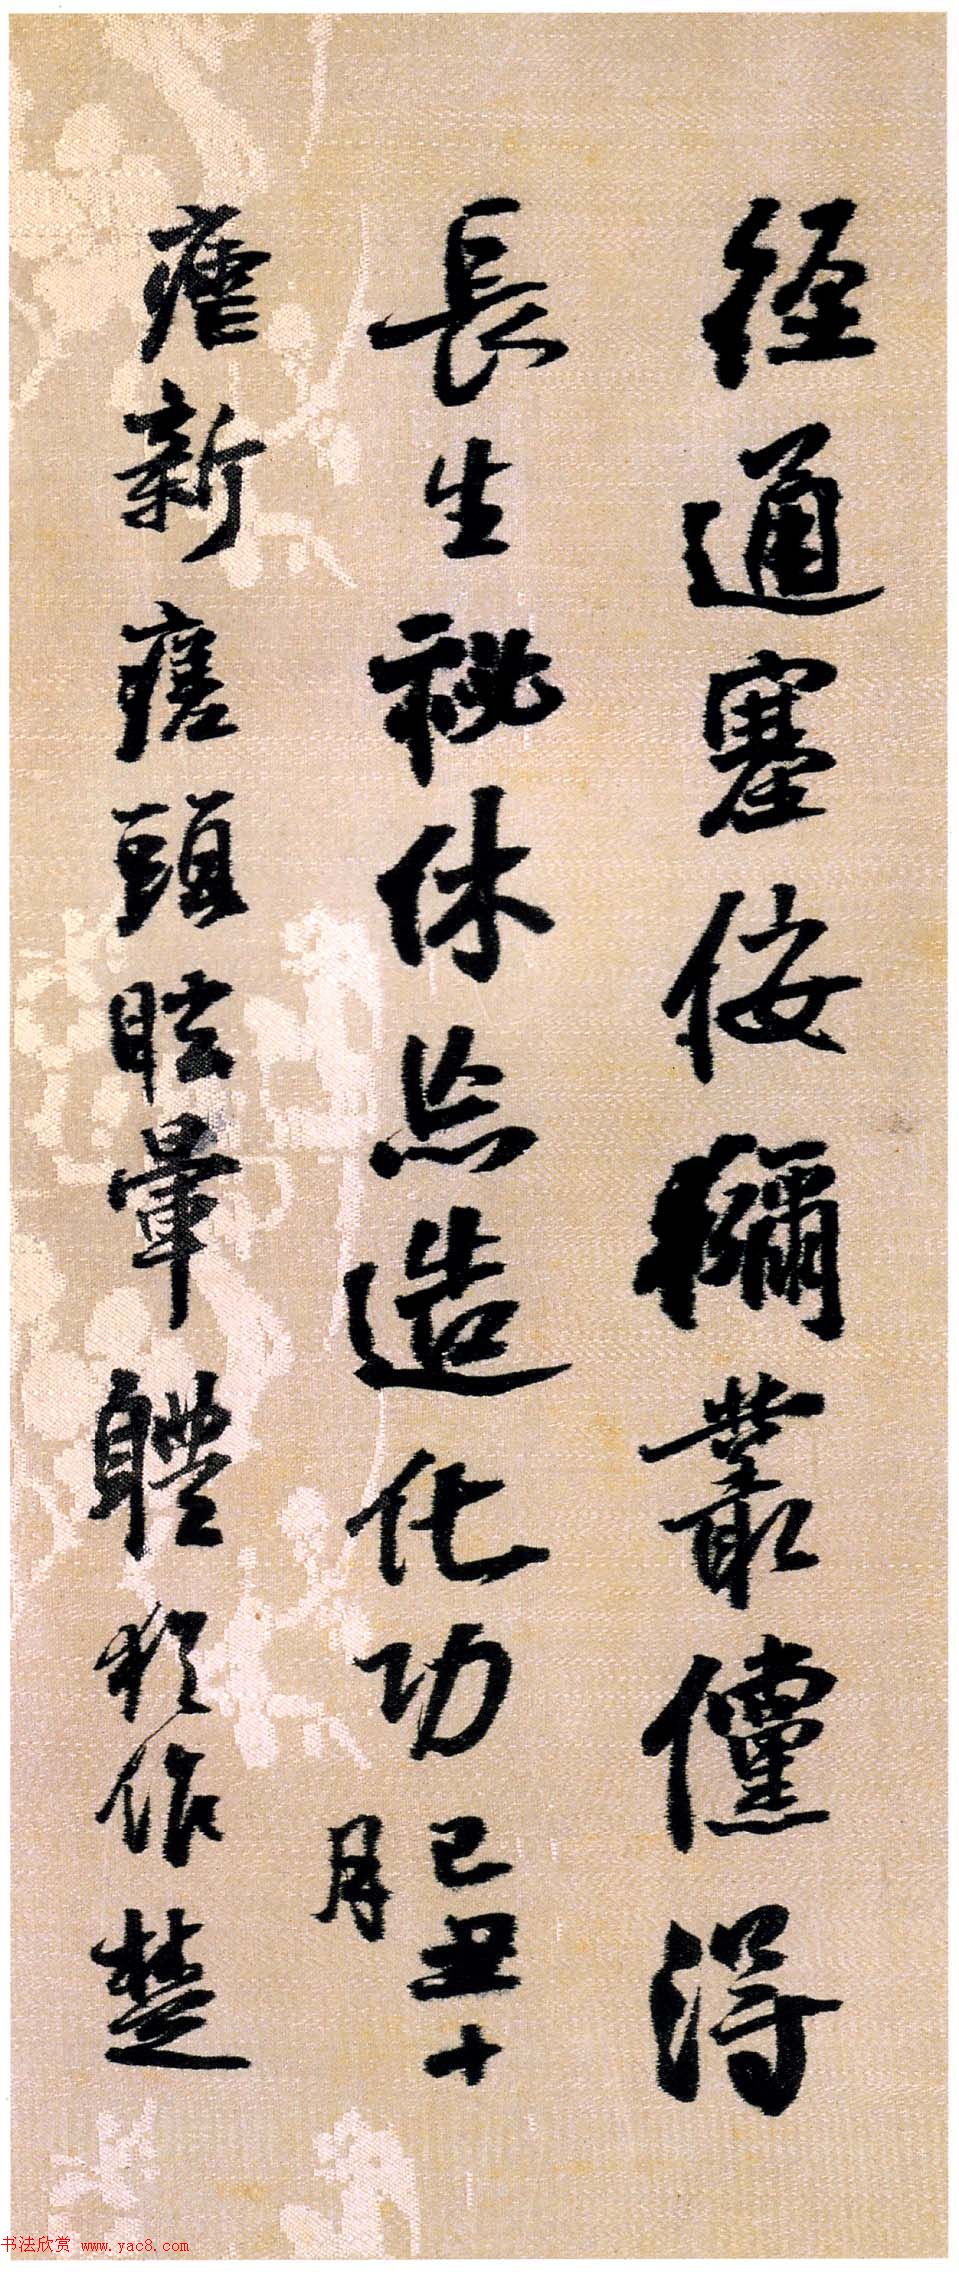 徑通塞獼叢儻得
長生秘休忘造化功
己丑十
月
瘧新瘥頭眩暈體猶作楚
书法欣赏 www.yac8.com